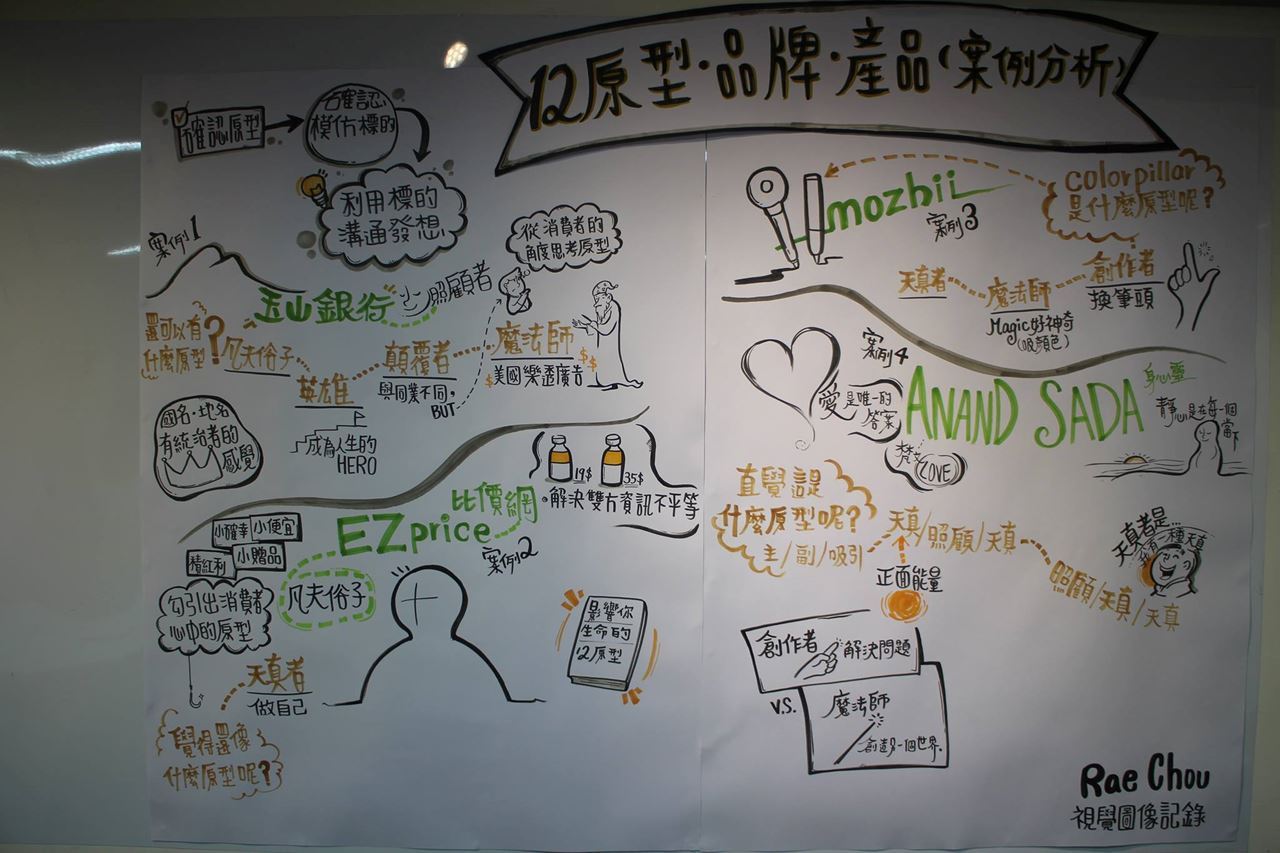 12原型·品牌·產品(案例分析)
確認原型
確認
模仿標的
利用標的
溝通發想
案例1
玉山銀行
照顧者
從消費者的
角度思考原型
還可以有
什麼原型?
凡夫俗子
英雄
成為人生的
HERO
顛覆者
與同業不同,
BUT
魔法師
美國樂透廣告
$
$$
國名·地名
有統治者的
感覺
小確幸
小便宜
積紅利
小贈品
EZprice
比價網
案例2
19$
35$
·解決雙方資訊不平等
凡夫俗子
勾引出消費者
心中的原型
天真者
做自己
覺得還像
什麼原型呢?
影響你
生命的
12原型
mozbii
案例3
colorpillar
是什麼原型呢?
天真者
魔法師
Magic好神奇
(吸顏色)
創作者
換筆頭
案例4
愛是唯一的
答案
梵文
LOVE
ANAND SADA
身心靈
靜心是在每一個
當下
直覺這是
什麼原型呢?
主/副/吸引
天真/照顧/天真
正面能量
照顧/天真/天真
天真者是...
有一種天真
創作者
解決問題
V.S.
魔法師
創造另一個世界.
Rae Chou
視覺圖像記錄